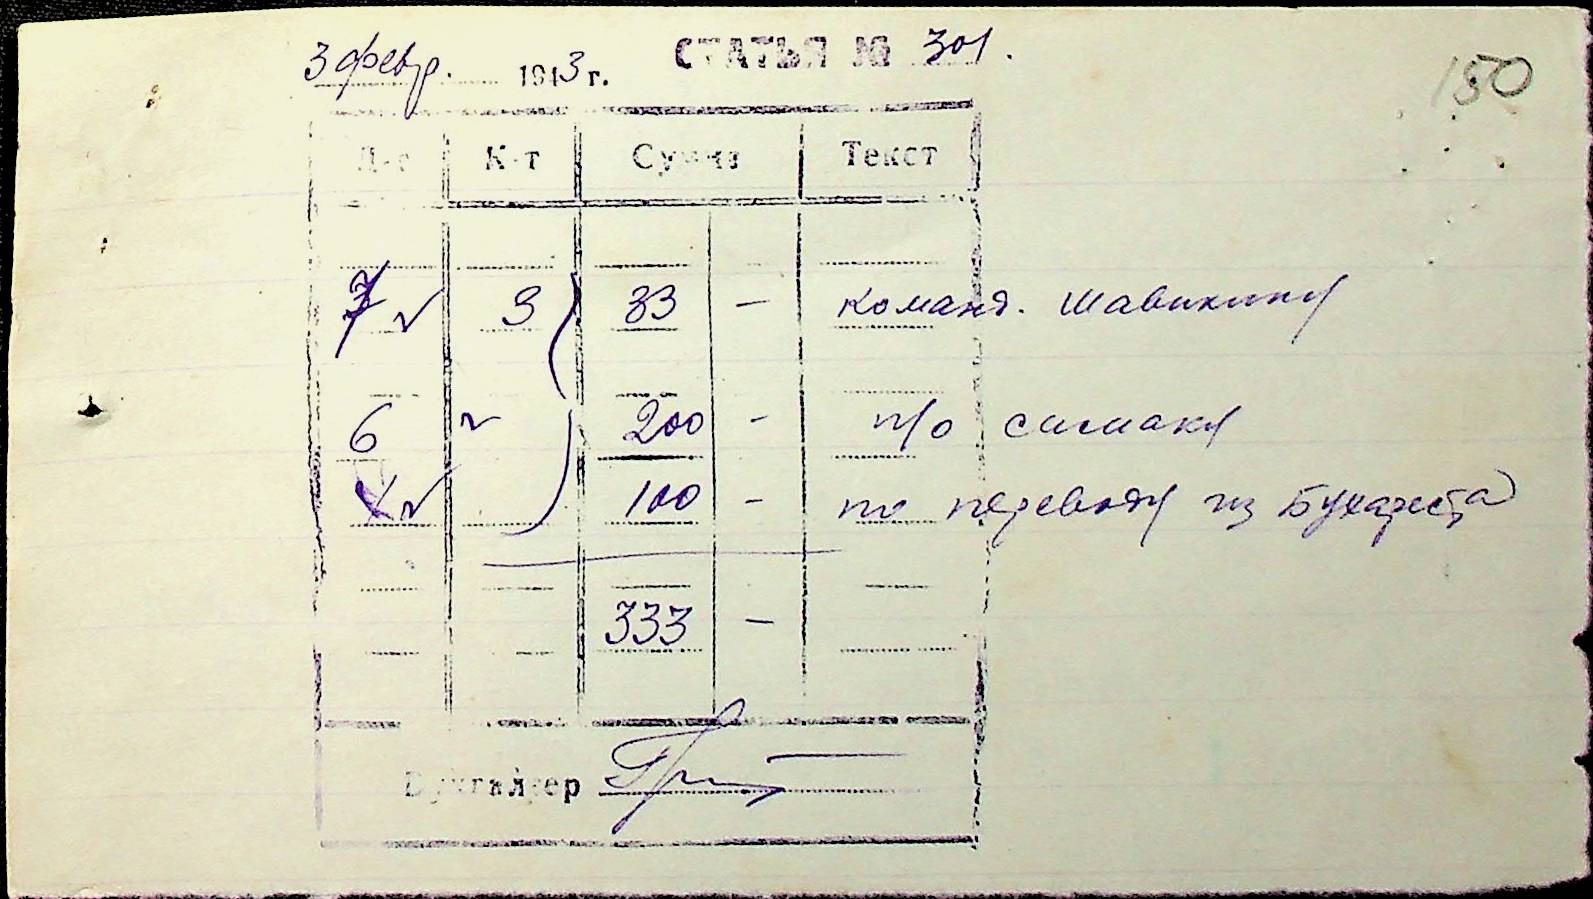 3 февр. 1943 г. СТАТЬЯ № 301.
150
Д-т К-т Сумма Текст
7 3 33 — команд. Шавикину
6 200 — п/о
100 — по переводу из Бухареста
333 —
Бухгалтер